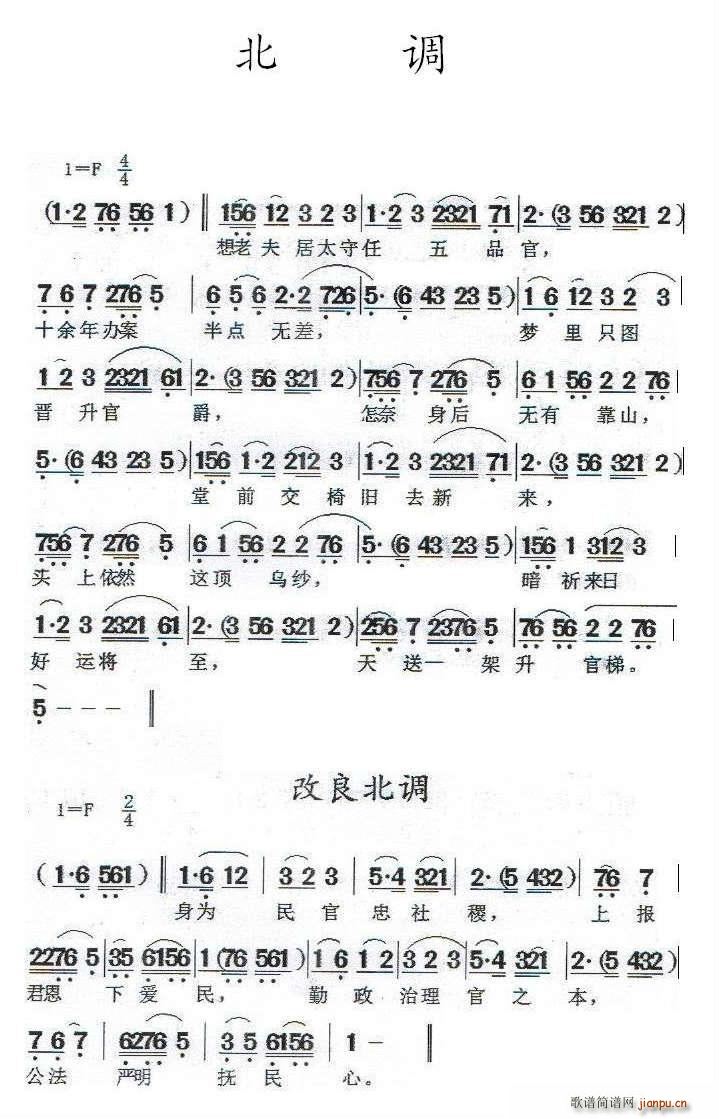 北 调
1=F 4/4
(1·2 76 56 1) ‖ 156 12 3 2 3 | 1·2 3 2321 71 | 2· (3 56 321 2) |
想老夫 居太守任 五 品 官,
7 6 7 276 5 | 6 5 6 2·2 726 | 5· (6 43 23 5) | 1 6 123 2 3 |
十余年办案 半点 无差, 梦 里 只图
1 2 3 2321 61 | 2· (3 56 321 2) | 756 7 276 5 | 6 1 56 2 2 76 |
晋 升官 爵, 怎奈 身后 无有 靠山,
5· (6 43 23 5) | 156 1·2 212 3 | 1·2 3 2321 71 | 2· (3 56 321 2) |
堂 前 交 椅旧 去新 来,
756 7 276 5 | 6 1 56 2 2 76 | 5· (6 43 23 5) | 156 1 312 3 |
头 上依然 这顶 乌纱, 暗 祈来日
1·2 3 2321 61 | 2· (3 56 321 2) | 256 7 2376 5 | 76 56 2 2 76 |
好 运将 至, 天 送一 架升 官梯。
5 - - - ‖
改良北调
1=F 2/4
(1·6 561) ‖ 1·6 12 | 3 2 3 | 5·4 321 | 2· (5 432) | 76 6 7 |
身为 民 官 忠 社 稷, 上 报
2276 5 | 35 6156 | 1 (76 561) | 1 6 1·2 | 3 2 3 | 5·4 321 | 2· (5 432) |
君恩 下 爱 民, 勤 政 治理 官 之 本,
7 6 7 | 6276 5 | 3 5 6156 | 1 - ‖
公法 严明 抚 民 心。
歌谱简谱网
jianpu.cn